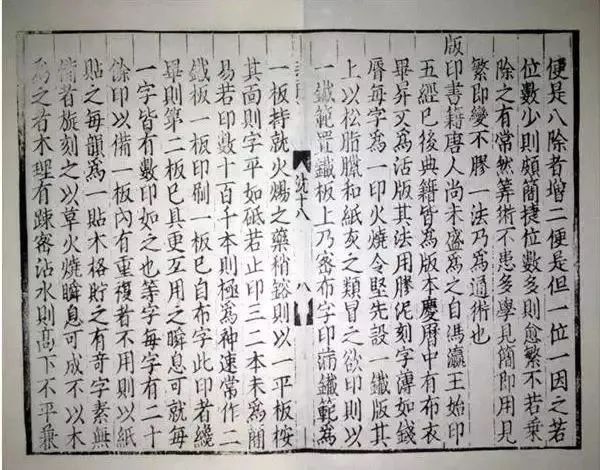 便是八除者增二便是但一位一因之若
位數少則頗簡捷位數多則愈繁不若乗
除之有常然筭術不患多學見簡即用見
繁即變不膠一法乃爲通術也
版印書籍唐人尚未盛爲之自馮瀛王始印
五經已後典籍皆爲版本慶曆中有布衣
畢昇又爲活版其法用膠泥刻字薄如錢
脣每字爲一印火燒令堅先設一鐵版其
上以松脂臘和紙灰之類冒之欲印則以
一鐵範置鐵板上乃密布字印滿鐵範爲
沈十八
八
一板持就火煬之藥稍鎔則以一平板按
其面則字平如砥若止印三二本未爲簡
易若印數十百千本則極爲神速常作二
鐵板一板印刷一板已自布字此印者纔
畢則第二板已具更互用之瞬息可就每
一字皆有數印如之也等字每字有二十
餘印以備一板內有重複者不用則以紙
貼之每韻爲一貼木格貯之有奇字素無
備者旋刻之以草火燒瞬息可成不以木
爲之者木理有踈密沾水則高下不平兼